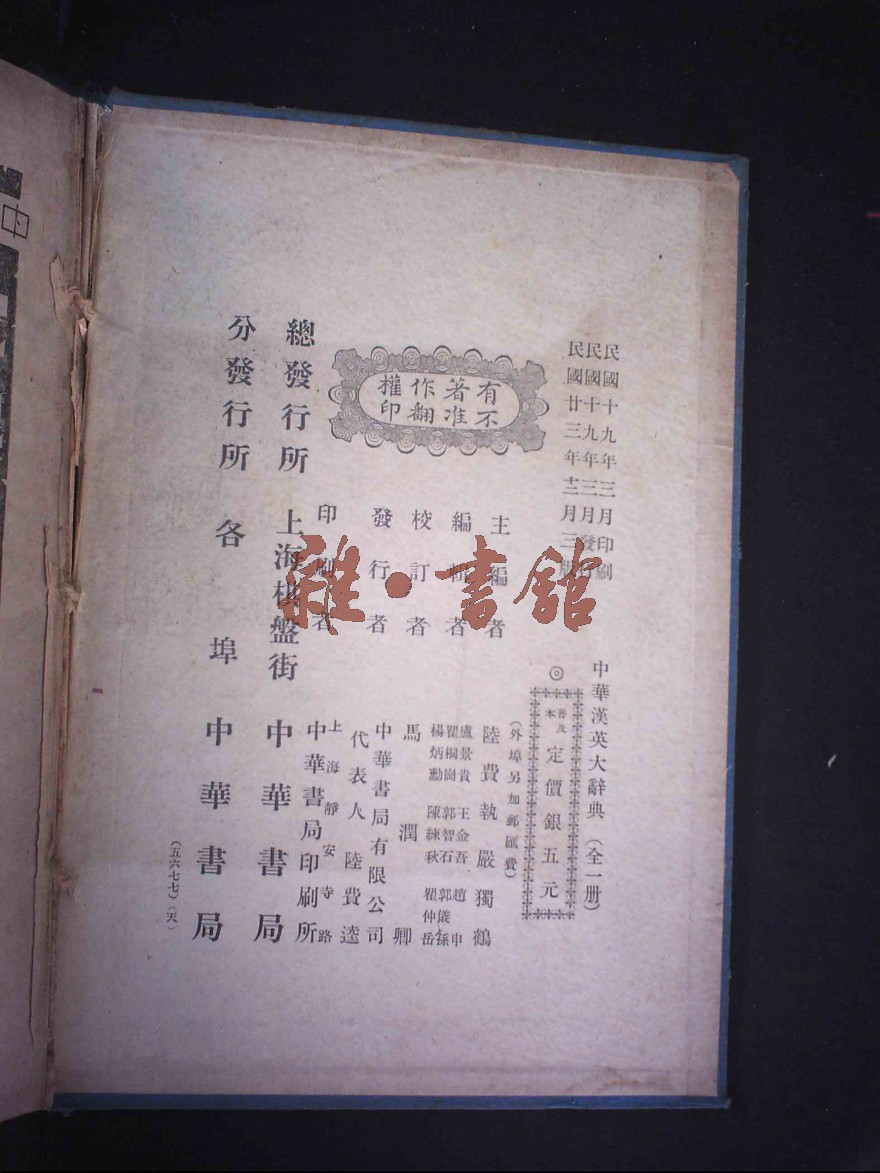 民國十九年三月印刷
民國十九年三月發行
民國廿三年十二月三版
中華漢英大辭典(全一册)
◎
普及本 定價銀五元
(外埠另加郵匯費)
有著作權
不准翻印
主編者 陸費執 嚴獨鶴
編輯者
盧景貴 王金吾 趙申
瞿桐崗 郭智石 郭儀孫
楊炳勳 陳練秋 瞿仲岳
校訂者 馬潤卿
發行者 中華書局有限公司
代表人 陸費逵
印刷者 上海靜安寺路
中華書局印刷所
總發行所 上海棋盤街 中華書局
分發行所 各埠 中華書局
(五六七七)(天)
雜·書館
中